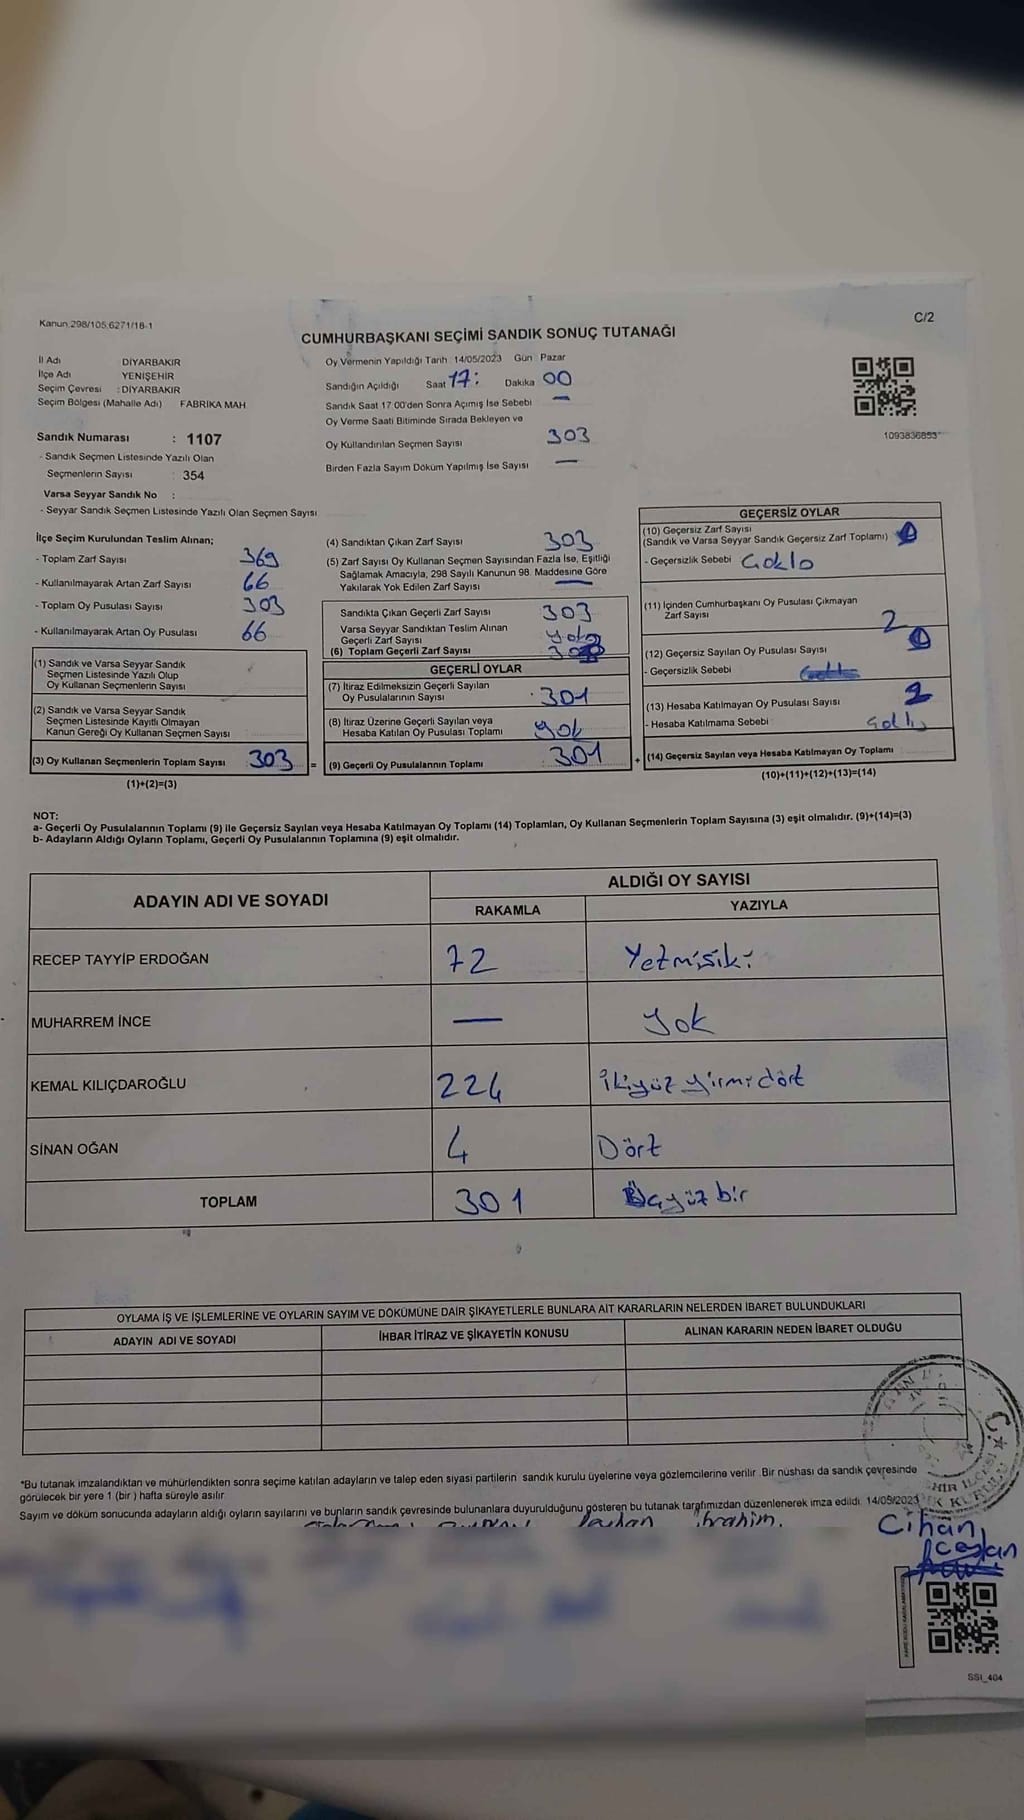 Kanun.298/105.6271/18-1
C/2
CUMHURBAŞKANI SEÇİMİ SANDIK SONUÇ TUTANAĞI
İl Adı : DİYARBAKIR
İlçe Adı : YENİŞEHİR
Seçim Çevresi : DİYARBAKIR
Seçim Bölgesi (Mahalle Adı) FABRİKA MAH
Sandık Numarası : 1107
- Sandık Seçmen Listesinde Yazılı Olan
Seçmenlerin Sayısı : 354
Varsa Seyyar Sandık No :
- Seyyar Sandık Seçmen Listesinde Yazılı Olan Seçmen Sayısı
Oy Vermenin Yapıldığı Tarih : 14/05/2023 Gün Pazar
Sandığın Açıldığı Saat 17: Dakika 00
Sandık Saat 17 00'den Sonra Açımış İse Sebebi —
Oy Verme Saati Bitiminde Sırada Bekleyen ve
Oy Kullandırılan Seçmen Sayısı 303
Birden Fazla Sayım Döküm Yapılmış İse Sayısı —
1093836853
İlçe Seçim Kurulundan Teslim Alınan;
- Toplam Zarf Sayısı 369
- Kullanılmayarak Artan Zarf Sayısı 66
- Toplam Oy Pusulası Sayısı 303
- Kullanılmayarak Artan Oy Pusulası 66
(1) Sandık ve Varsa Seyyar Sandık
Seçmen Listesinde Yazılı Olup
Oy Kullanan Seçmenlerin Sayısı
(2) Sandık ve Varsa Seyyar Sandık
Seçmen Listesinde Kayıtlı Olmayan
Kanun Gereği Oy Kullanan Seçmen Sayısı
(3) Oy Kullanan Seçmenlerin Toplam Sayısı 303 =
(1)+(2)=(3)
(4) Sandıktan Çıkan Zarf Sayısı 303
(5) Zarf Sayısı Oy Kullanan Seçmen Sayısından Fazla İse, Eşitliği
Sağlamak Amacıyla, 298 Sayılı Kanunun 98. Maddesine Göre
Yakılarak Yok Edilen Zarf Sayısı —
Sandıkta Çıkan Geçerli Zarf Sayısı 303
Varsa Seyyar Sandıktan Teslim Alınan
Geçerli Zarf Sayısı
(6) Toplam Geçerli Zarf Sayısı
GEÇERLİ OYLAR
(7) İtiraz Edilmeksizin Geçerli Sayılan
Oy Pusulalarının Sayısı 301
(8) İtiraz Üzerine Geçerli Sayılan veya
Hesaba Katılan Oy Pusulası Toplamı yok
(9) Geçerli Oy Pusulalarının Toplamı 301 +
GEÇERSİZ OYLAR
(10) Geçersiz Zarf Sayısı
(Sandık ve Varsa Seyyar Sandık Geçersiz Zarf Toplamı)
- Geçersizlik Sebebi
(11) İçinden Cumhurbaşkanı Oy Pusulası Çıkmayan
Zarf Sayısı 2
(12) Geçersiz Sayılan Oy Pusulası Sayısı
- Geçersizlik Sebebi
(13) Hesaba Katılmayan Oy Pusulası Sayısı 2
- Hesaba Katılmama Sebebi
(14) Geçersiz Sayılan veya Hesaba Katılmayan Oy Toplamı
(10)+(11)+(12)+(13)=(14)
NOT:
a- Geçerli Oy Pusulalarının Toplamı (9) ile Geçersiz Sayılan veya Hesaba Katılmayan Oy Toplamı (14) Toplamları, Oy Kullanan Seçmenlerin Toplam Sayısına (3) eşit olmalıdır. (9)+(14)=(3)
b- Adayların Aldığı Oyların Toplamı, Geçerli Oy Pusulalarının Toplamına (9) eşit olmalıdır.
ADAYIN ADI VE SOYADI
ALDIĞI OY SAYISI
RAKAMLA YAZIYLA
RECEP TAYYİP ERDOĞAN 72 Yetmişiki
MUHARREM İNCE — yok
KEMAL KILIÇDAROĞLU 224 ikiyüz yirmi dört
SİNAN OĞAN 4 Dört
TOPLAM 301 Üçyüz bir
OYLAMA İŞ VE İŞLEMLERİNE VE OYLARIN SAYIM VE DÖKÜMÜNE DAİR ŞİKAYETLERLE BUNLARA AİT KARARLARIN NELERDEN İBARET BULUNDUKLARI
ADAYIN ADI VE SOYADI İHBAR İTİRAZ VE ŞİKAYETİN KONUSU ALINAN KARARIN NEDEN İBARET OLDUĞU
*Bu tutanak imzalandıktan ve mühürlendikten sonra seçime katılan adayların ve talep eden siyasi partilerin sandık kurulu üyelerine veya gözlemcilerine verilir .Bir nüshası da sandık çevresinde
görülecek bir yere 1 (bir ) hafta süreyle asılır
Sayım ve döküm sonucunda adayların aldığı oyların sayılarını ve bunların sandık çevresinde bulunanlara duyurulduğunu gösteren bu tutanak tarafımızdan düzenlenerek imza edildi. 14/05/2023
İbrahim.
Cihan
SSI_404